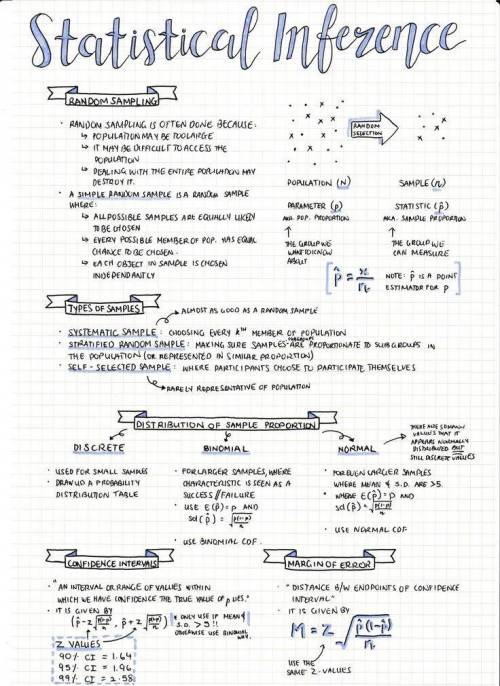 Statistical Inference
RANDOM SAMPLING
• RANDOM SAMPLING IS OFTEN DONE BECAUSE:
↳ POPULATION MAY BE TOO LARGE
↳ IT MAY BE DIFFICULT TO ACCESS THE
POPULATION
↳ DEALING WITH THE ENTIRE POPULATION MAY
DESTROY IT.
• A SIMPLE RANDOM SAMPLE IS A RANDOM SAMPLE
WHERE:
↳ ALL POSSIBLE SAMPLES ARE EQUALLY LIKELY
TO BE CHOSEN
↳ EVERY POSSIBLE MEMBER OF POP. HAS EQUAL
CHANCE TO BE CHOSEN.
↳ EACH OBJECT IN SAMPLE IS CHOSEN
INDEPENDANTLY
RANDOM
SELECTION
POPULATION (N)
SAMPLE (n)
PARAMETER (p)
AKA. POP. PROPORTION
STATISTIC (p̂)
AKA. SAMPLE PROPORTION
THE GROUP WE
WANT TO KNOW
ABOUT
THE GROUP WE
CAN MEASURE
p̂ = x/n
NOTE: p̂ IS A POINT
ESTIMATOR FOR p
TYPES OF SAMPLES
ALMOST AS GOOD AS A RANDOM SAMPLE
• SYSTEMATIC SAMPLE: CHOOSING EVERY kTH MEMBER OF POPULATION
• STRATIFIED RANDOM SAMPLE: MAKING SURE SAMPLES ARE PROPORTIONATE TO SUBGROUPS IN
THE POPULATION (OR REPRESENTED IN SIMILAR PROPORTION)
• SELF-SELECTED SAMPLE: WHERE PARTICIPANTS CHOOSE TO PARTICIPATE THEMSELVES
RARELY REPRESENTATIVE OF POPULATION
DISTRIBUTION OF SAMPLE PROPORTION
DISCRETE
• USED FOR SMALL SAMPLES
• DRAW UP A PROBABILITY
DISTRIBUTION TABLE
BINOMIAL
• FOR LARGER SAMPLES, WHERE
CHARACTERISTIC IS SEEN AS A
SUCCESS//FAILURE
• USE E(p̂)=p AND
sd(p̂) = √(p(1-p)/n)
• USE BINOMIAL CDF.
NORMAL
THERE ARE SO MANY
VALUES THAT IT
APPEARS NORMALLY
DISTRIBUTED BUT
STILL DISCRETE VALUES
• FOR EVEN LARGER SAMPLES
WHERE MEAN & S.D. ARE >5.
• WHERE E(p̂)=p AND
sd(p̂)=√(p(1-p)/n)
• USE NORMAL CDF
CONFIDENCE INTERVALS
• "AN INTERVAL OR RANGE OF VALUES WITHIN
WHICH WE HAVE CONFIDENCE THE TRUE VALUE OF p LIES."
• IT IS GIVEN BY
(p̂-z√(p̂(1-p̂)/n), p̂+z√(p̂(1-p̂)/n))
* ONLY USE IF MEAN &
S.D. > 5!!
OTHERWISE USE BINOMIAL
WAY.
Z VALUES
90% CI = 1.64
95% CI = 1.96
99% CI = 2.58
MARGIN OF ERROR
• "DISTANCE B/W ENDPOINTS OF CONFIDENCE
INTERVAL"
• IT IS GIVEN BY
M = Z √(p̂(1-p̂)/n)
USE THE
SAME Z-VALUES